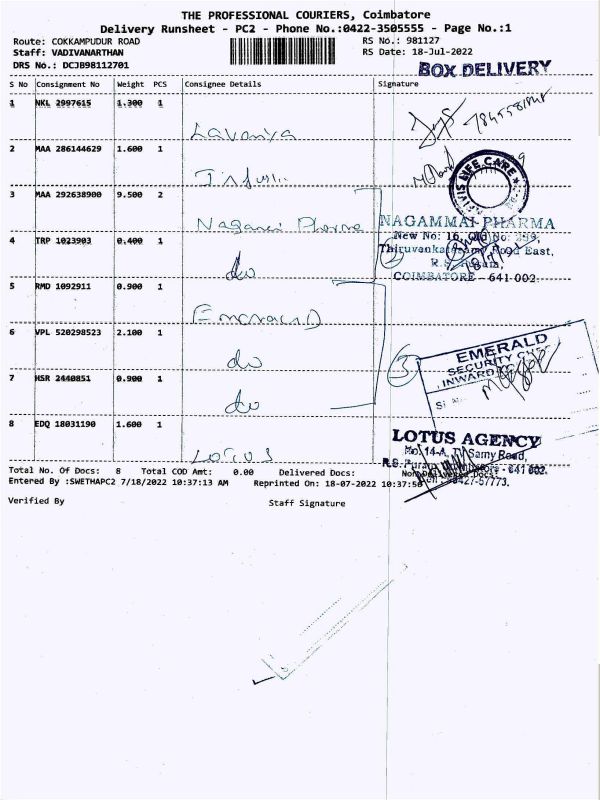 THE PROFESSIONAL COURIERS, Coimbatore
Delivery Runsheet - PC2 - Phone No.:0422-3505555 - Page No.:1
Route: COKKAMPUDUR ROAD RS No.: 981127
Staff: VADIVANARTHAN RS Date: 18-Jul-2022
DRS No.: DCJB98112701
BOX DELIVERY
S No Consignment No Weight PCS Consignee Details Signature
1 NKL 2997615 1.300 1
Lavanya
2 MAA 286144629 1.600 1
VIS LIFE CARE
3 MAA 292638900 9.500 2
Nagami Pharma
NAGAMMAI PHARMA
New No: 16, Old No:
4 TRP 1023903 0.400 1
Road East,
do
COIMBATORE - 641 002.
5 RMD 1092911 0.900 1
Emerald
6 VPL 520298523 2.100 1
do
3
EMERALD
SECURITY
INWARD
7 HSR 2440851 0.900 1
do
8 EDQ 18031190 1.600 1
Lotus
LOTUS AGENCY
No. 14-A, TV Samy Road,
R.S. Puram 641 002.
Total No. Of Docs: 8 Total COD Amt: 0.00 Delivered Docs:
Entered By :SWETHAPC2 7/18/2022 10:37:13 AM Reprinted On: 18-07-2022 10:37:50
Verified By Staff Signature